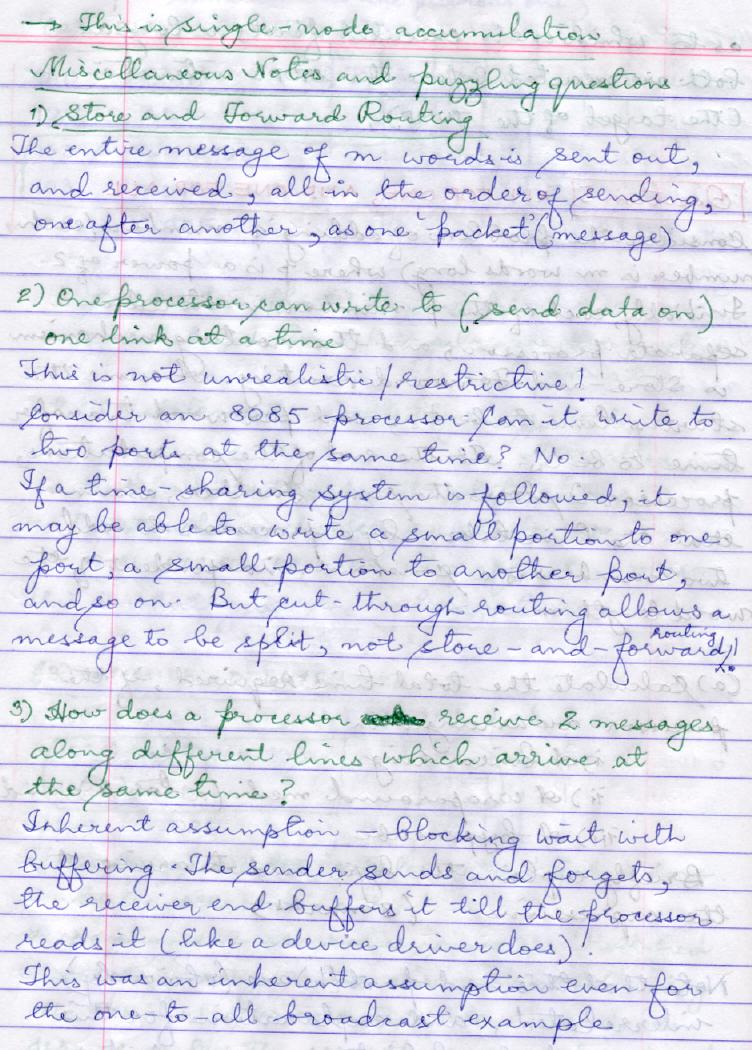 → This is single-node accumulation
Miscellaneous Notes and puzzling questions
1) Store and Forward Routing
The entire message of m words is sent out,
and received, all in the order of sending,
one after another, as one 'packet' (message)
2) One processor can write to (send data on)
one link at a time
This is not unrealistic/restrictive!
Consider an 8085 processor Can it write to
two ports at the same time? No.
If a time-sharing system is followed, it
may be able to write a small portion to one
port, a small portion to another port,
and so on. But cut-through routing allows a
message to be split, not store-and-forward routing!
3) How does a processor receive 2 messages
along different lines which arrive at
the same time?
Inherent assumption - blocking wait with
buffering. The sender sends and forgets,
the receiver end buffers it till the processor
reads it (like a device driver does)!
This was an inherent assumption even for
the one-to-all broadcast example